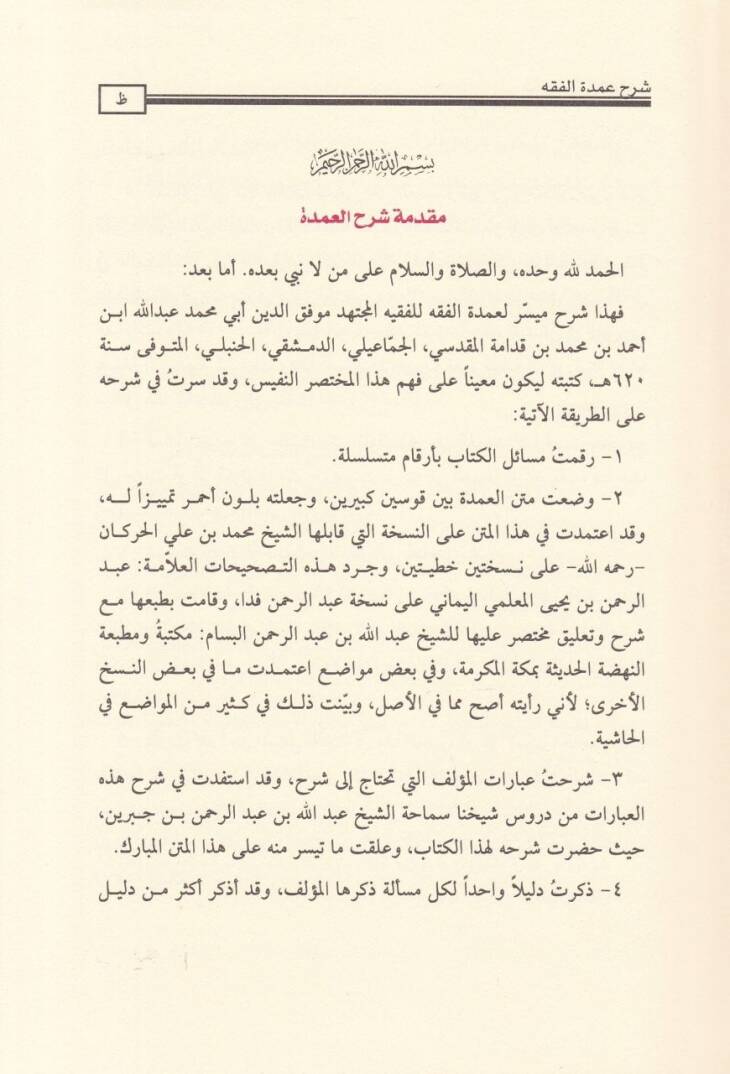 شرح عمدة الفقه
ظ
بسم الله الرحمن الرحيم
مقدمة شرح العمدة
الحمد لله وحده، والصلاة والسلام على من لا نبي بعده. أما بعد:
فهذا شرح ميسّر لعمدة الفقه للفقيه المجتهد موفق الدين أبي محمد عبدالله ابن
أحمد بن محمد بن قدامة المقدسي، الجمّاعيلي، الدمشقي، الحنبلي، المتوفى سنة
٦٢٠هـ، كتبته ليكون معيناً على فهم هذا المختصر النفيس، وقد سرتُ في شرحه
على الطريقة الآتية:
١- رقمتُ مسائل الكتاب بأرقام متسلسلة.
٢- وضعت متن العمدة بين قوسين كبيرين، وجعلته بلون أحمر تمييزاً له،
وقد اعتمدت في هذا المتن على النسخة التي قابلها الشيخ محمد بن علي الحركان
-رحمه الله- على نسختين خطيتين، وجرد هذه التصحيحات العلاّمة: عبد
الرحمن بن يحيى المعلمي اليماني على نسخة عبد الرحمن فدا، وقامت بطبعها مع
شرح وتعليق مختصر عليها للشيخ عبد الله بن عبد الرحمن البسام: مكتبةُ ومطبعة
النهضة الحديثة بمكة المكرمة، وفي بعض مواضع اعتمدت ما في بعض النسخ
الأخرى؛ لأني رأيته أصح مما في الأصل، وبيّنت ذلك في كثير من المواضع في
الحاشية.
٣- شرحتُ عبارات المؤلف التي تحتاج إلى شرح، وقد استفدت في شرح هذه
العبارات من دروس شيخنا سماحة الشيخ عبد الله بن عبد الرحمن بن جبرين،
حيث حضرت شرحه لهذا الكتاب، وعلقت ما تيسر منه على هذا المتن المبارك.
٤- ذكرتُ دليلاً واحداً لكل مسألة ذكرها المؤلف، وقد أذكر أكثر من دليل